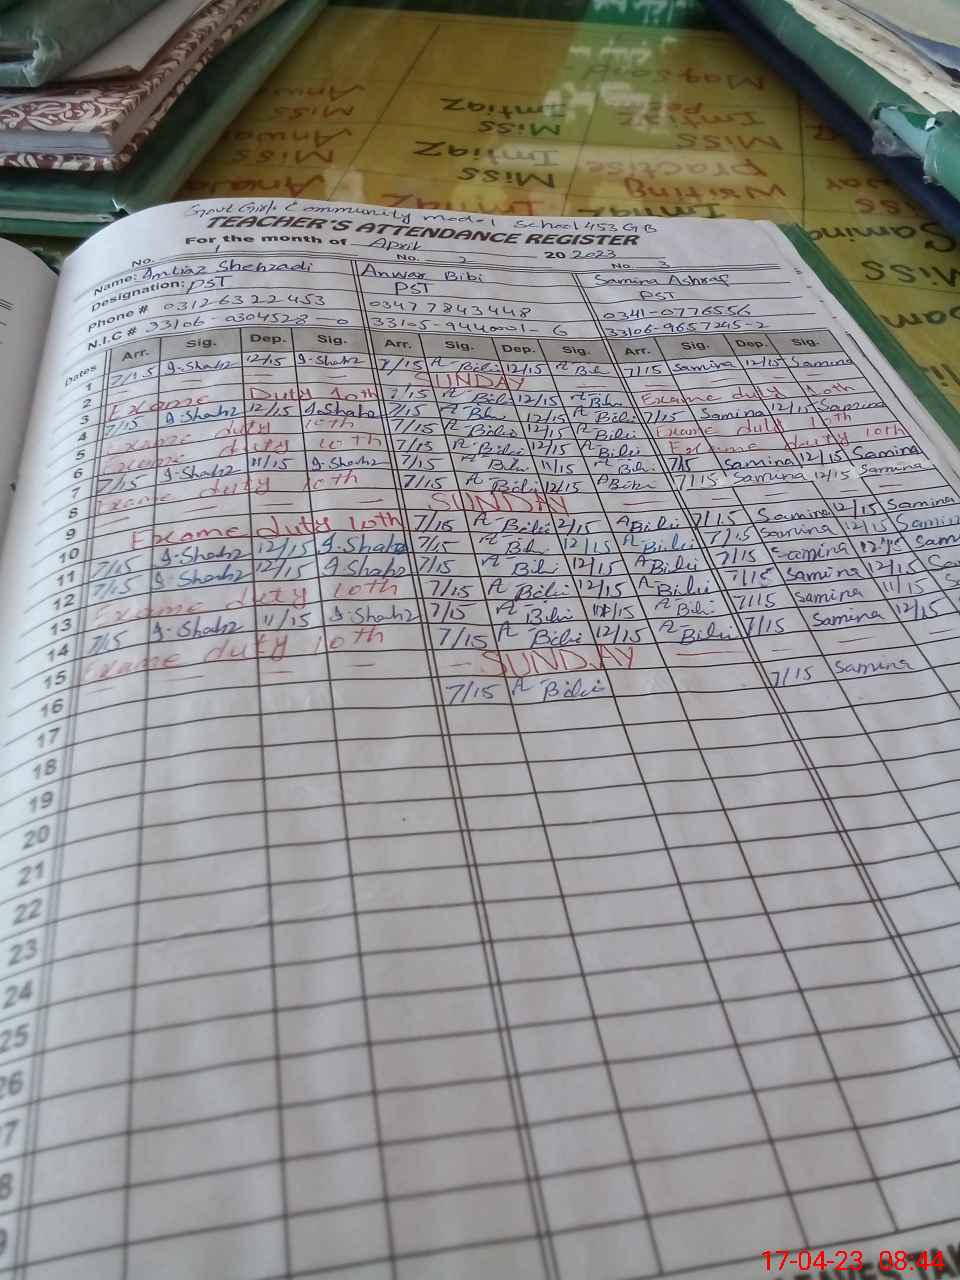 Magsaid
Miss Imtiaz Poem Imtiaz
Anwar Miss Miss
Miss Imtiaz practise
Anwar Miss Writing
Imtiaz Imtiaz
Samina
Miss
Govt Girls Community model school 453 GB
TEACHER'S ATTENDANCE REGISTER
For the month of April 20 2023
No. 1 No. 2 No. 3
Name: Imtiaz Shehzadi Anwar Bibi Samina Ashraf
Designation: PST PST PST
Phone # 0312-6322453 03477843448 0341-0776556
N.I.C # 33106-0304528-0 33105-9440001-6 33106-9657245-2
Dates Arr. Sig. Dep. Sig. Arr. Sig. Dep. Sig. Arr. Sig. Dep. Sig.
1 7/15 I-Shahz 12/15 I-Shahz 7/15 A Bibi 12/15 A Bibi 7/15 Samina 12/15 Samina
2 — — — — SUNDAY — — — —
3 Exame Duty 10th 7/15 A Bibi 12/15 A Bibi Exame duty 10th
4 7/15 I-Shahz 12/15 I-Shahz 7/15 A Bibi 12/15 A Bibi 7/15 Samina 12/15 Samina
5 Exame duty 10th 7/15 A-Bibi 12/15 A Bibi Exame duty 10th
6 Exame duty 10th 7/15 A Bibi 12/15 A Bibi Exame duty 10th
7 7/15 I-Shahz 11/15 I-Shahz 7/15 A Bibi 11/15 A Bibi 7/15 Samina 12/15 Samina
8 Exame duty 10th 7/15 A Bibi 12/15 A Bibi 7/15 Samina 12/15 Samina
9 — — SUNDAY — — — —
10 Exame duty 10th 7/15 A-Bibi 12/15 A Bibi 7/15 Samina 12/15 Samina
11 7/15 I-Shahz 12/15 I-Shahz 7/15 A Bibi 12/15 A Bibi 7/15 Samina 12/15 Samin
12 7/15 I-Shahz 12/15 I Shahz 7/15 A Bibi 12/15 A Bibi 7/15 Samina 12/15 Sam
13 Exame duty 10th 7/15 A Bibi 12/15 A Bibi 7/15 Samina 12/15 Sa
14 7/15 I-Shahz 11/15 I-Shahz 7/15 A-Bibi 11/15 A Bibi 7/15 Samina 11/15 S
15 Exame duty 10th 7/15 A Bibi 12/15 A-Bibi 7/15 Samina 12/15
16 — — — — — SUNDAY — — — —
17 7/15 A Bibi 7/15 Samina
18
19
20
21
22
23
24
25
26
7
8
9
17-04-23 08:44